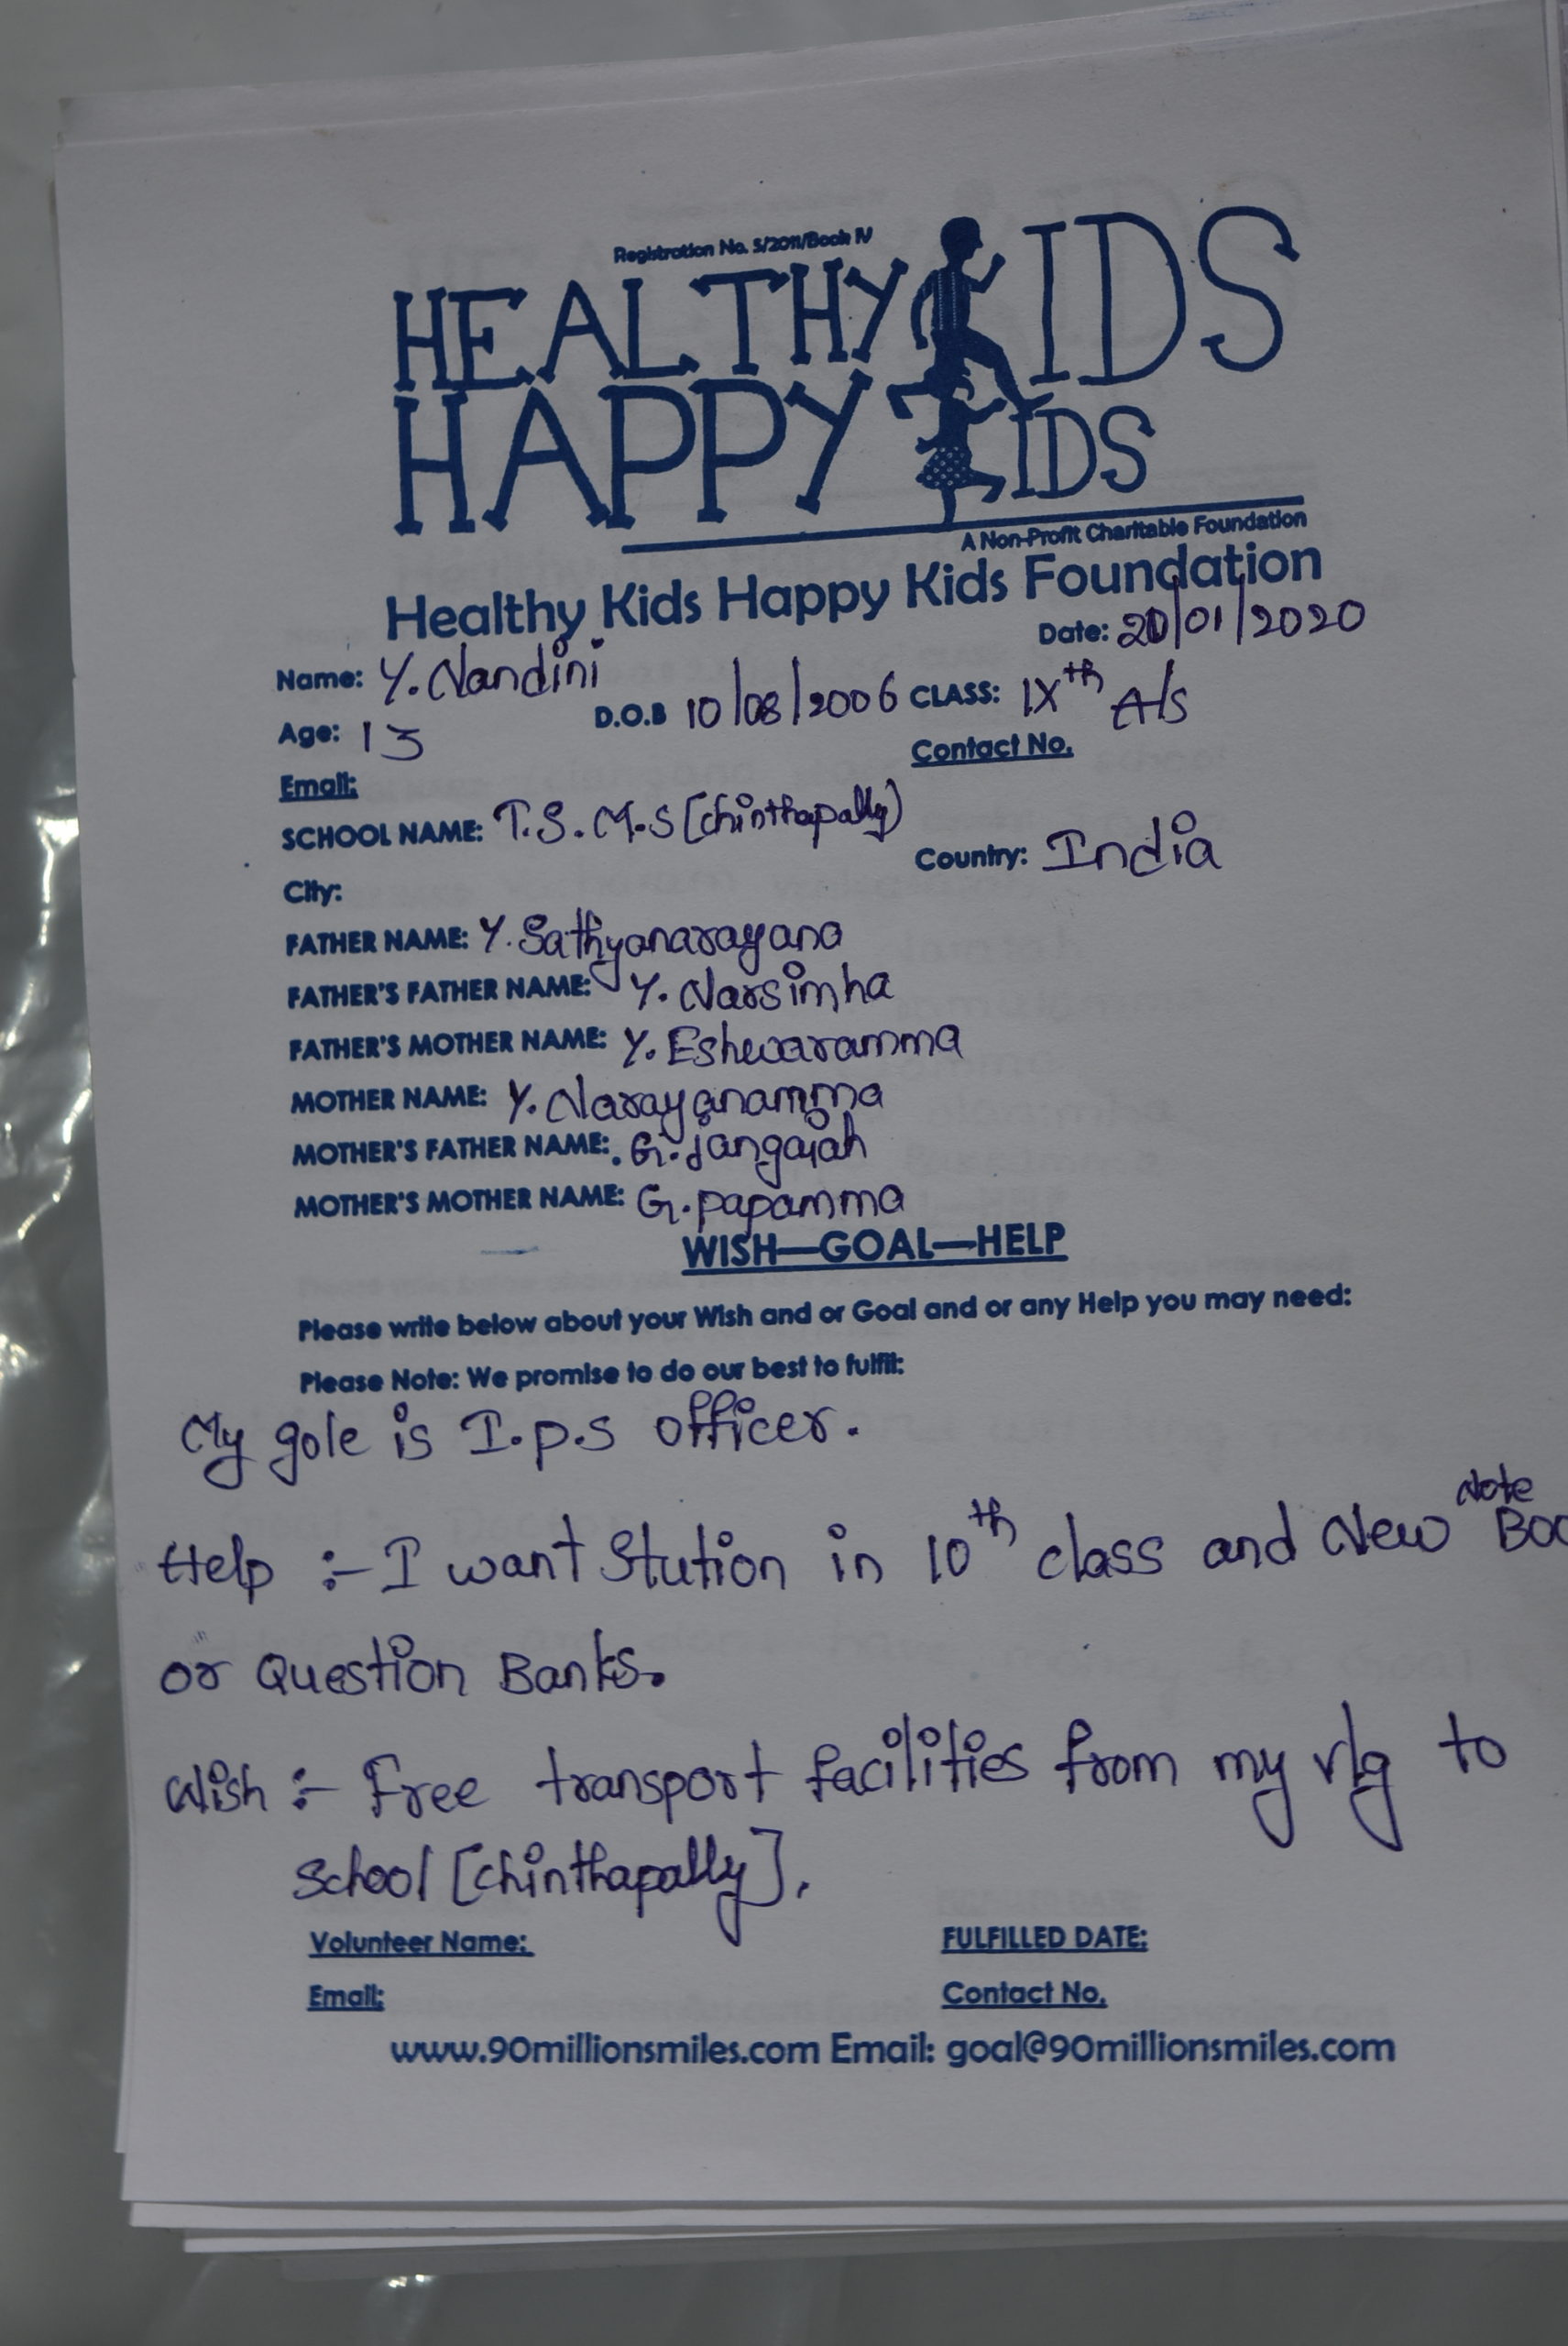 Registration No. 5/2011/Book IV
HEALTHY KIDS
HAPPY KIDS
A Non-Profit Charitable Foundation
Healthy Kids Happy Kids Foundation
Date: 20/01/2020
Name: Y. Nandini
Age: 13 D.O.B 10/08/2006 CLASS: IXth A/s
Email: Contact No.
SCHOOL NAME: T.S.M.S [chinthapally]
City: Country: India
FATHER NAME: Y. Sathyanarayana
FATHER'S FATHER NAME: Y. Narsimha
FATHER'S MOTHER NAME: Y. Eshwaramma
MOTHER NAME: Y. Narayanamma
MOTHER'S FATHER NAME: G. jangaiah
MOTHER'S MOTHER NAME: G. papamma
WISH—GOAL—HELP
Please write below about your Wish and or Goal and or any Help you may need:
Please Note: We promise to do our best to fulfil:
My gole is I.p.s officer.
Help :- I want Stution in 10th class and New Note Boo
or Question Banks.
Wish :- Free transport facilities from my vlg to
school [chinthapally].
Volunteer Name: FULFILLED DATE:
Email: Contact No.
www.90millionsmiles.com Email: goal@90millionsmiles.com